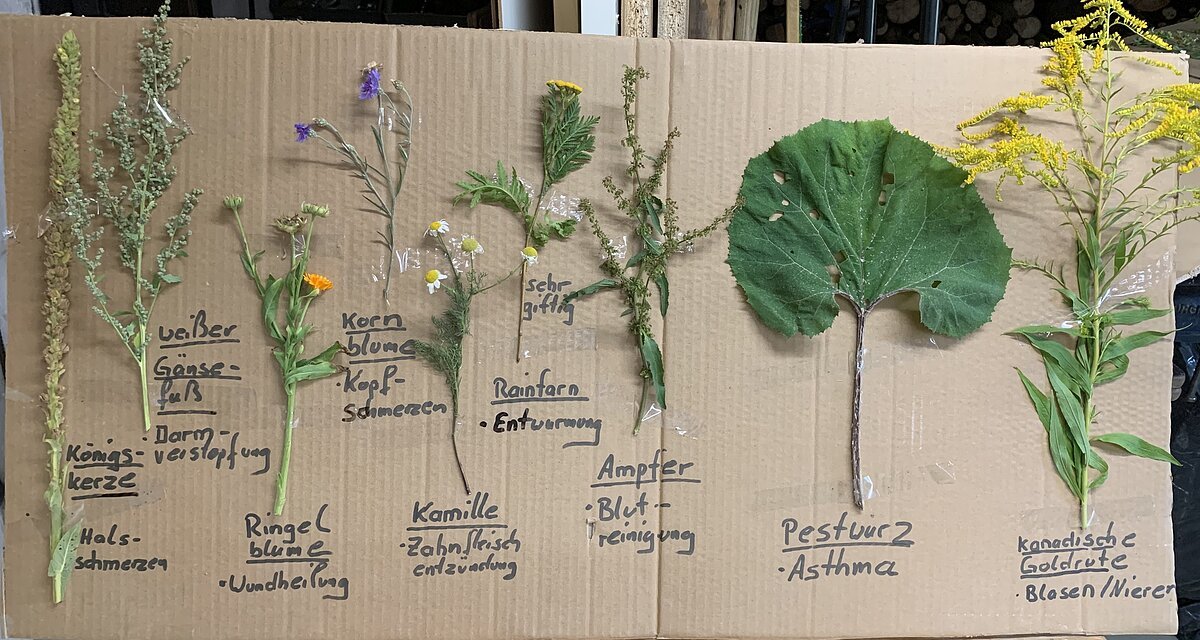 Königs-
kerze
Hals-
schmerzen
weißer
Gänse-
fuß
Darm-
verstopfung
Ringel
blume
• Wundheilung
Korn
blume
• Kopf-
schmerzen
Kamille
• Zahnfleisch
entzündung
sehr
giftig
Rainfarn
• Entwurmung
Ampfer
• Blut-
reinigung
Pestwurz
• Asthma
Kanadische
Goldrute
• Blasen/Nieren